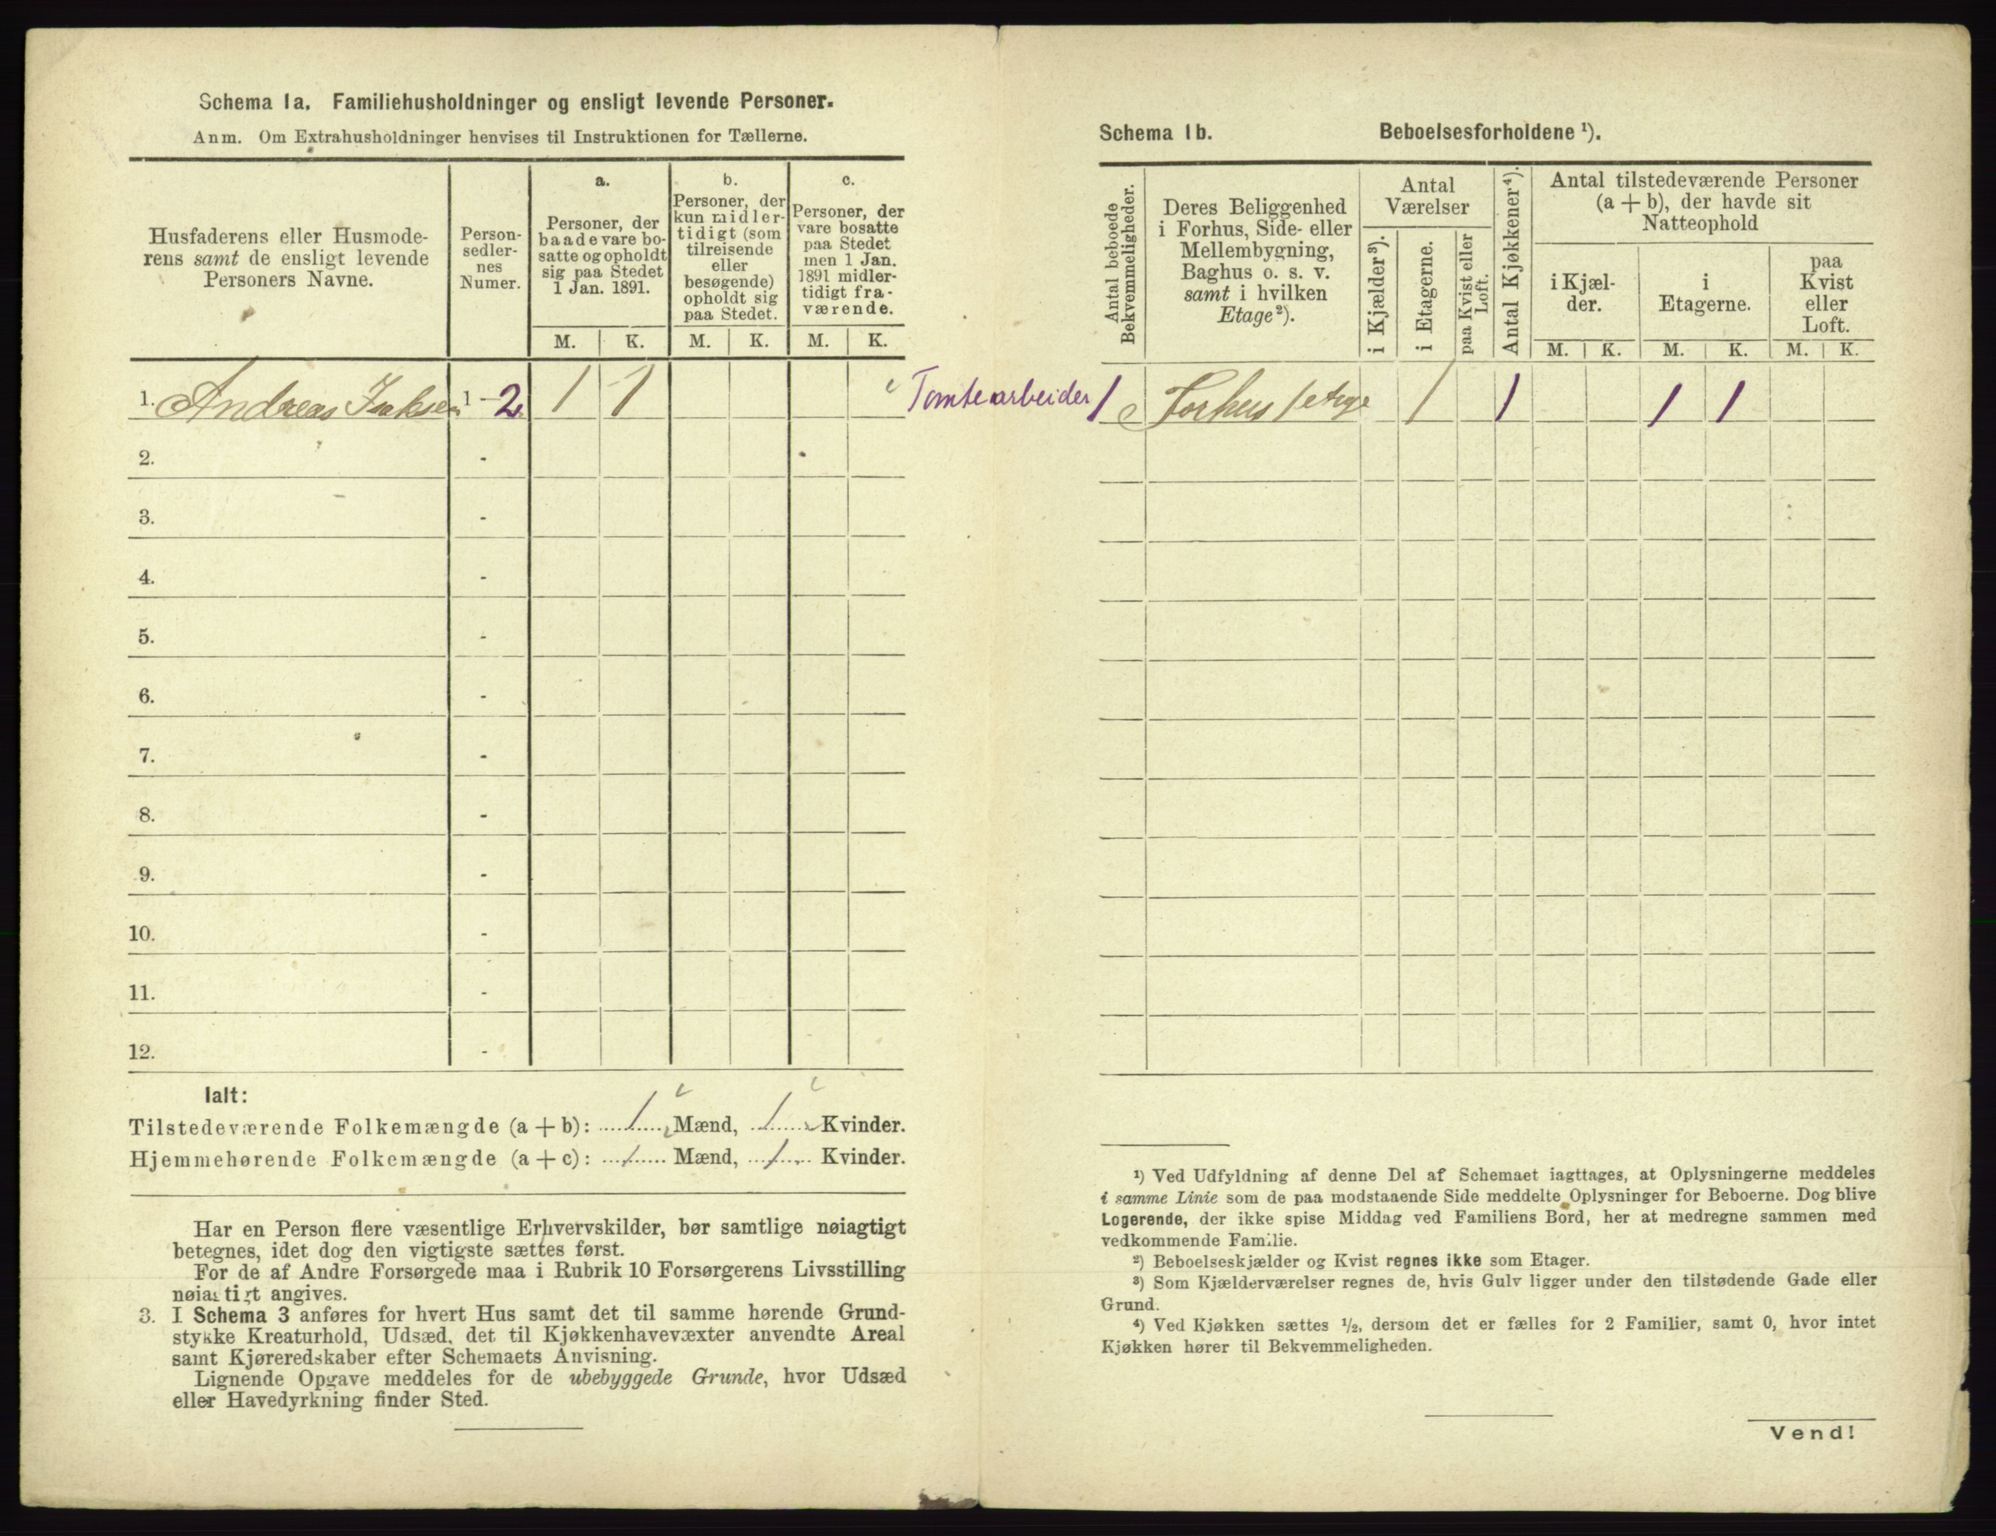 Schema 1a. Familiehusholdninger og ensligt levende Personer.
Anm. Om Extrahusholdninger henvises til Instruktionen for Tællerne.
Husfaderens eller Husmode-
rens samt de ensligt levende
Personers Navne.
Person-
sedler-
nes
Numer.
a.
Personer, der
baade vare bo-
satte og opholdt
sig paa Stedet
1 Jan. 1891.
b.
Personer, der
kun midler-
tidigt (som
tilreisende
eller
besøgende)
opholdt sig
paa Stedet.
c.
Personer, der
vare bosatte
paa Stedet
men 1 Jan.
1891 midler-
tidigt fra-
værende.
M. K. M. K. M. K.
1. Andreas Isaksen 1 - 2 1 1
2. -
3. -
4. -
5. -
6. -
7. -
8. -
9. -
10. -
11. -
12. -
Ialt:
Tilstedeværende Folkemængde (a + b): 1 Mænd, 1 Kvinder.
Hjemmehørende Folkemængde (a + c): 1 Mænd, 1 Kvinder.
Har en Person flere væsentlige Erhvervskilder, bør samtlige nøiagtigt
betegnes, idet dog den vigtigste sættes først.
For de af Andre Forsørgede maa i Rubrik 10 Forsørgerens Livsstilling
nøiagtigt angives.
3. I Schema 3 anføres for hvert Hus samt det til samme hørende Grund-
stykke Kreaturhold, Udsæd, det til Kjøkkenhavevæxter anvendte Areal
samt Kjøreredskaber efter Schemaets Anvisning.
Lignende Opgave meddeles for de ubebyggede Grunde, hvor Udsæd
eller Havedyrkning finder Sted.
Schema 1b. Beboelsesforholdene ¹).
Antal beboede
Bekvemmeligheder.
Deres Beliggenhed
i Forhus, Side- eller
Mellembygning,
Baghus o. s. v.
samt i hvilken
Etage²).
Antal
Værelser
i Kjælder³).
i Etagerne.
paa Kvist eller
Loft.
Antal Kjøkkener⁴).
Antal tilstedeværende Personer
(a + b), der havde sit
Natteophold
i Kjæl-
der.
i
Etagerne.
paa
Kvist
eller
Loft.
M. K. M. K. M. K.
Tomtearbeider 1 Forhus 1 etage 1 1 1 1
¹) Ved Udfyldning af denne Del af Schemaet iagttages, at Oplysningerne meddeles
i samme Linie som de paa modstaaende Side meddelte Oplysninger for Beboerne. Dog blive
Logerende, der ikke spise Middag ved Familiens Bord, her at medregne sammen med
vedkommende Familie.
²) Beboelseskjælder og Kvist regnes ikke som Etager.
³) Som Kjælderværelser regnes de, hvis Gulv ligger under den tilstødende Gade eller
Grund.
⁴) Ved Kjøkken sættes ½, dersom det er fælles for 2 Familier, samt 0, hvor intet
Kjøkken hører til Bekvemmeligheden.
Vend!